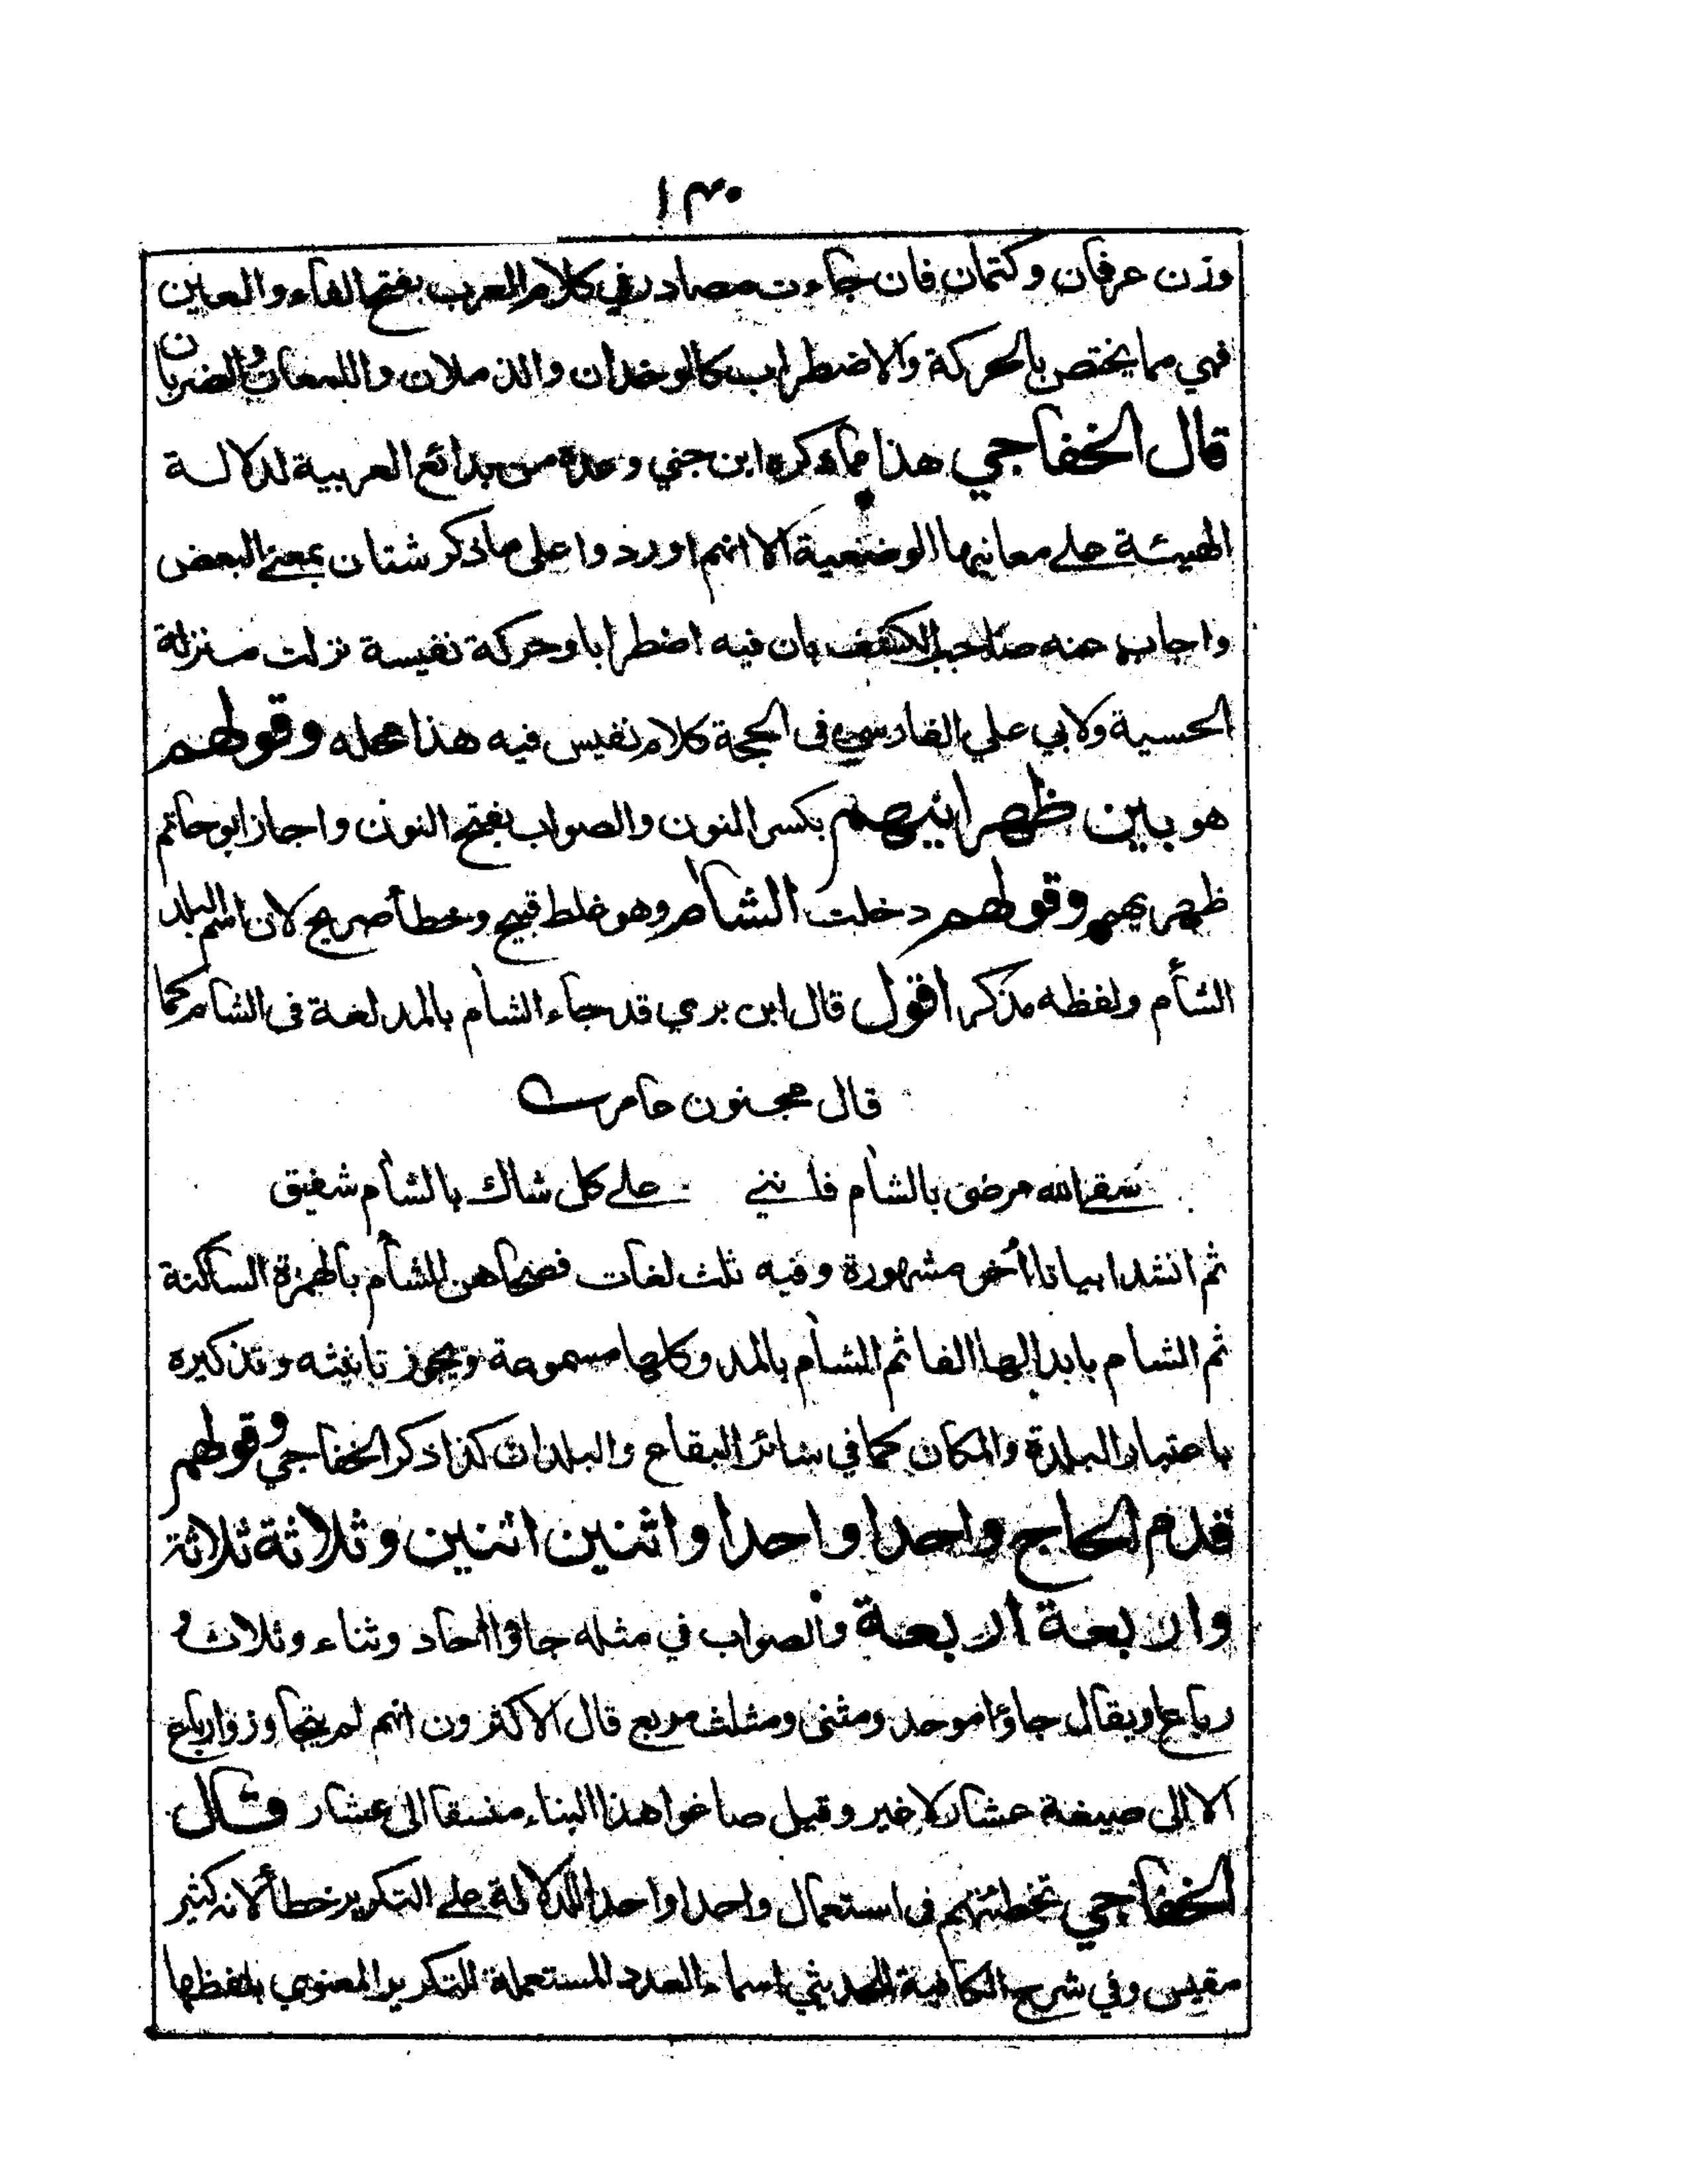 ١٣٠
وزن عرفان وكتمان فان جاءت مصادر في كلام العرب بفتح الفاء والعين
فهي مما يختص بالحركة والاضطراب كالوخدان والذملان واللمعان والضربان
قال الخفاجي هذا مما ذكره ابن جني وعده من بدائع العربية لدلالة
الهيئة على معانيها الوضعية الا انهم اوردوا على ما ذكر شنان بمعنى البعض
واجاب عنه صاحب الكشف بان فيه اضطرابا وحركة نفيسة نزلت منزلة
الحسية ولابي علي الفارسي في الحجة كلام نفيس فيه هذا محله وقولهم
هو بين ظهرانيهم بكسر النون والصواب بفتح النون واجاز ابو حاتم
ظهريهم وقولهم دخلت الشآم وهو غلط قبيح وخطأ صريح لان اسم البلد
الشأم ولفظه مذكر اقول قال ابن بري قد جاء الشآم بالمد لغة في الشام كما
قال مجنون عامر
سقى الله مرضى بالشام فانني على كل شاك بالشآم شفيق
ثم انشد ابياتا أخر مشهورة وفيه ثلث لغات فصحاهن الشأم بالهمزة الساكنة
ثم الشام بابدالها الفا ثم الشآم بالمد وكلها مسموعة ويجوز تانيثه وتذكيره
باعتبار البلدة والمكان كما في سائر البقاع والبلدان كذا ذكر الخفاجي وقولهم
قدم الحاج واحدا واحدا واثنين اثنين وثلاثة ثلاثة
واربعة اربعة والصواب في مثله جاؤا احاد وثناء وثلاث و
رباع او يقال جاؤا موحد ومثنى ومثلث مربع قال الاكثرون انهم لم يتجاوزوا رباع
الا الى صيغة عشار لا غير وقيل صاغوا هذا البناء منسقا الى عشار وقال
الخفاجي تخطئتهم في استعمال واحدا واحدا للدلالة على التكرير خطأ لانه كثير
مقيس وفي شرح الكافية للحديثي اسماء العدد المستعملة للتكرير المعنوي بلفظها